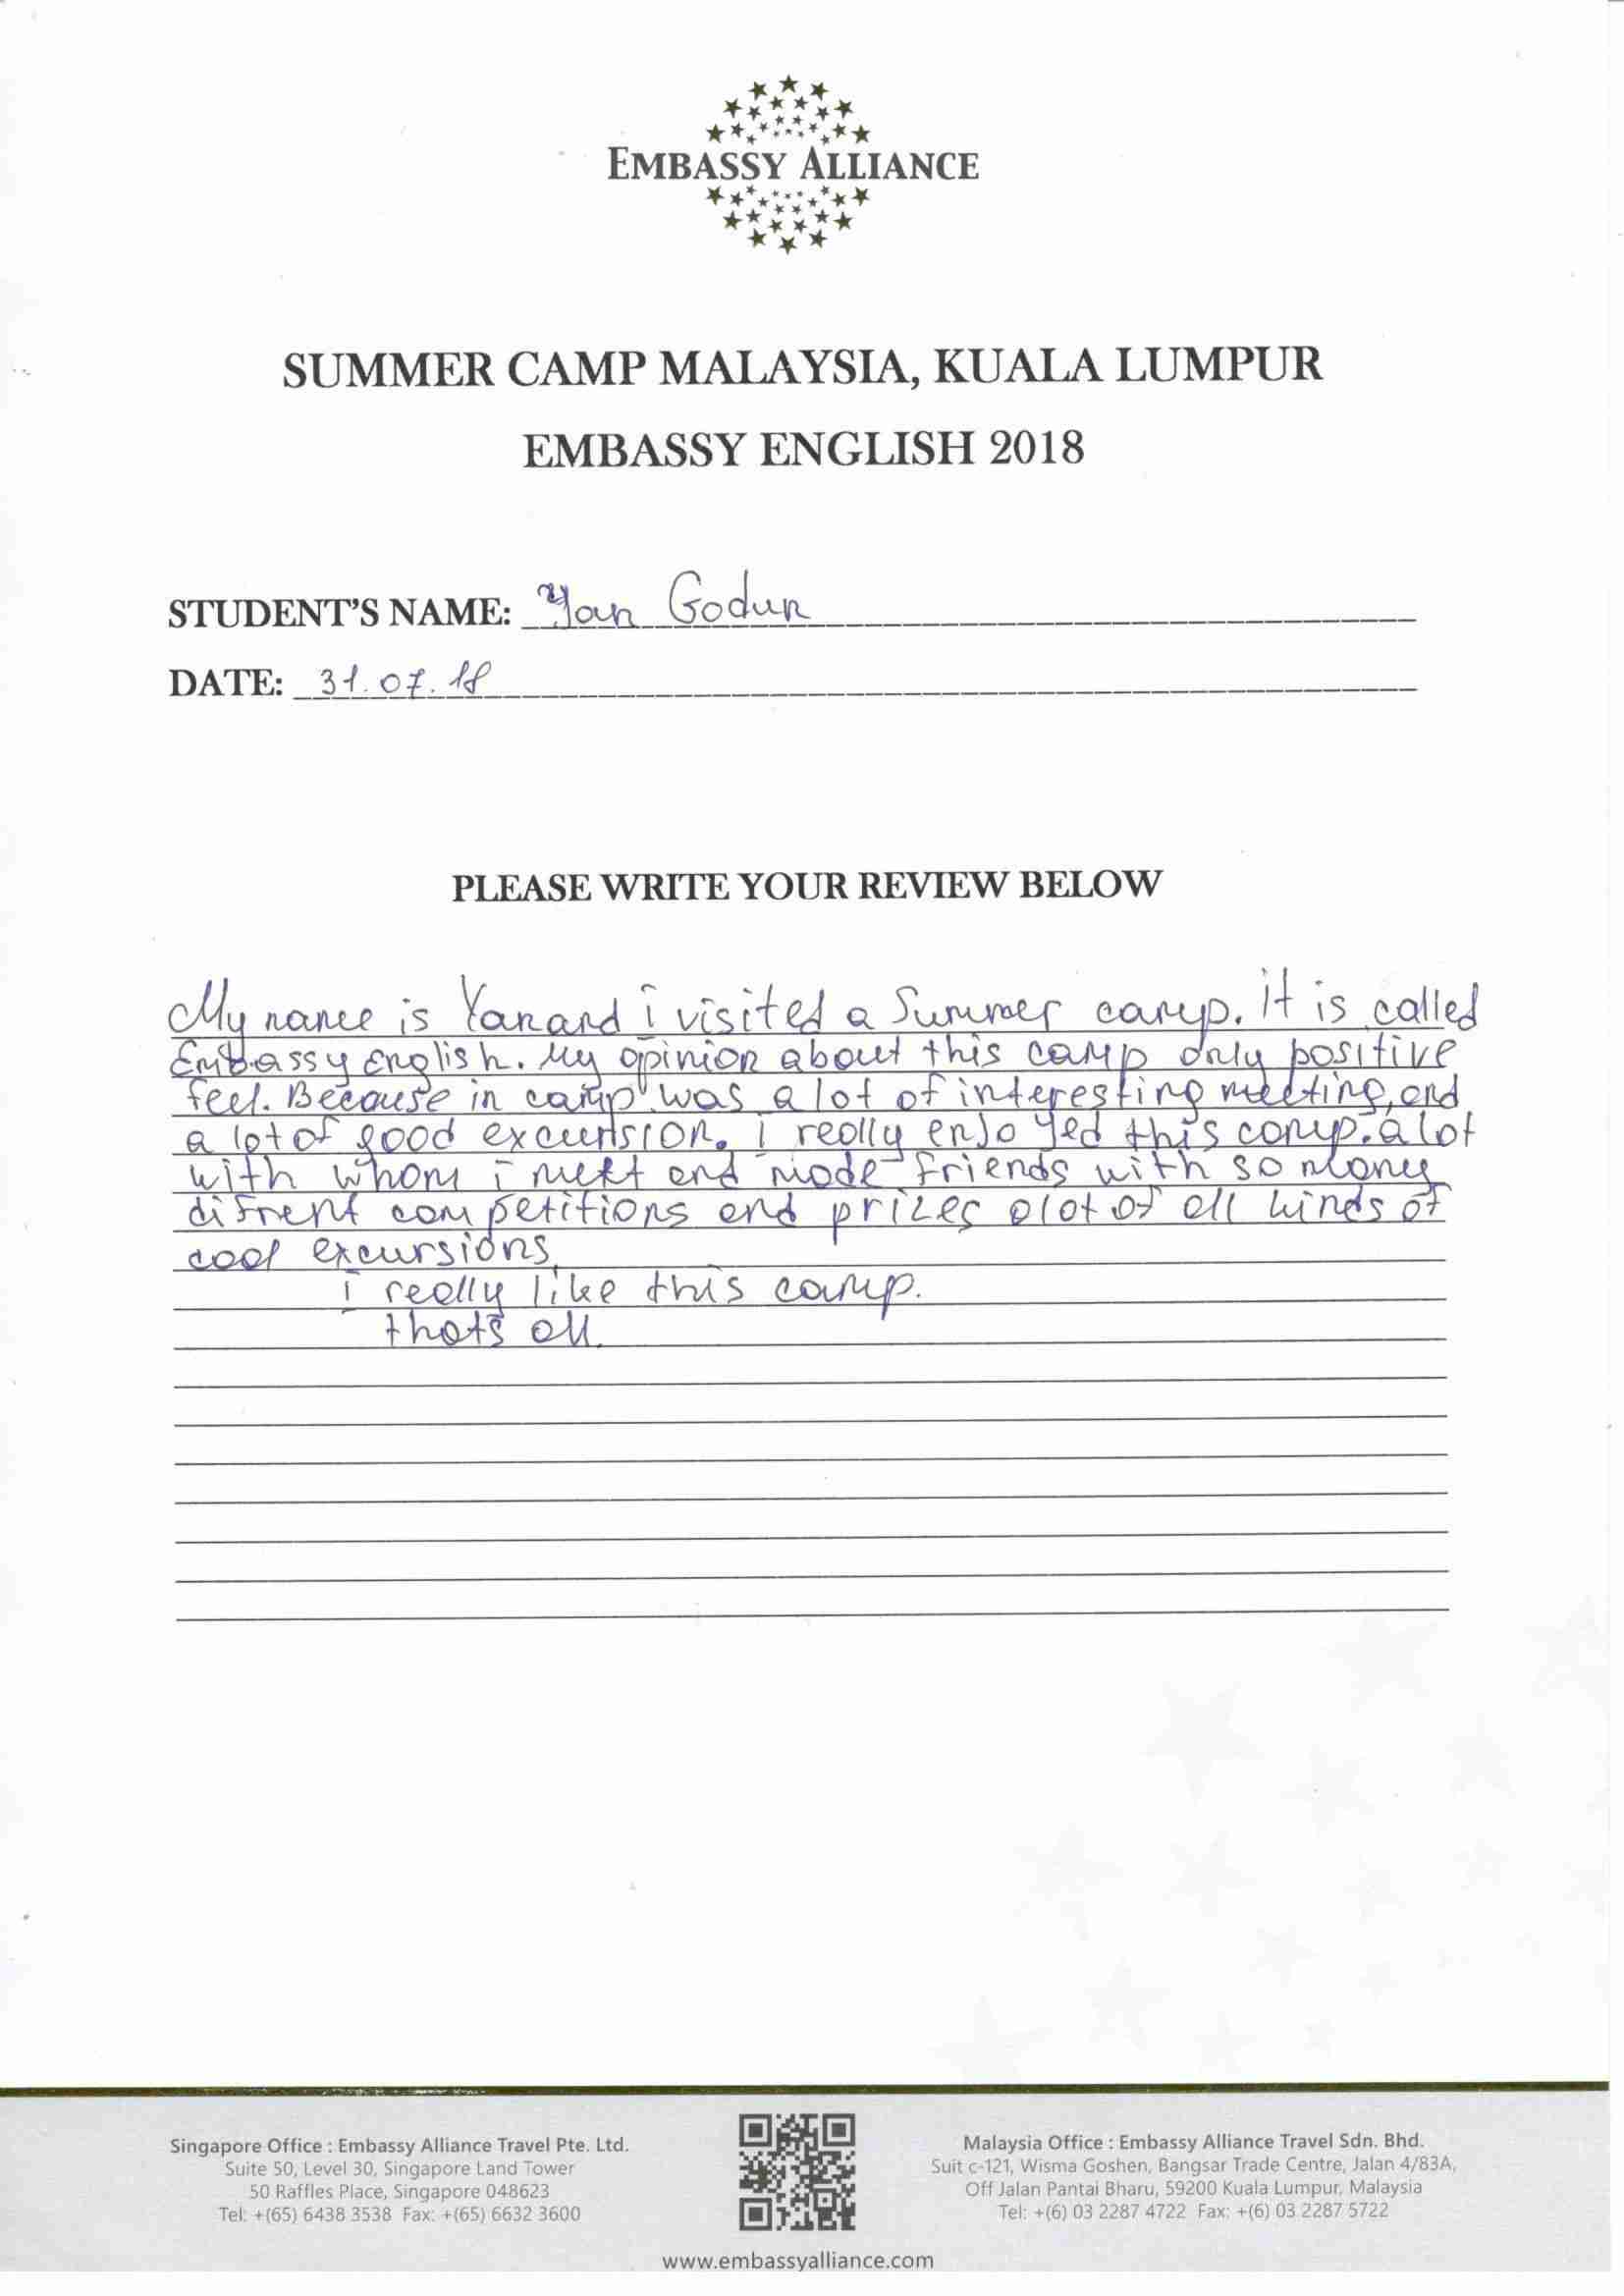 EMBASSY ALLIANCE
SUMMER CAMP MALAYSIA, KUALA LUMPUR
EMBASSY ENGLISH 2018
STUDENT'S NAME: Yan Godun
DATE: 31.07.18
PLEASE WRITE YOUR REVIEW BELOW
My name is Yan and i visited a Summer camp. it is called
Embassy English. My opinion about this camp only positive
feel. Because in camp was a lot of interesting meeting, and
a lot of good excursion. i really enjoyed this camp. a lot
with whom i meet and made friends with so many
difrent competitions and prizes a lot of all kinds of
cool excursions,
i really like this camp.
thats all.
Singapore Office : Embassy Alliance Travel Pte. Ltd.
Suite 50, Level 30, Singapore Land Tower
50 Raffles Place, Singapore 048623
Tel: +(65) 6438 3538 Fax: +(65) 6632 3600
Malaysia Office : Embassy Alliance Travel Sdn. Bhd.
Suit c-121, Wisma Goshen, Bangsar Trade Centre, Jalan 4/83A,
Off Jalan Pantai Bharu, 59200 Kuala Lumpur, Malaysia
Tel: +(6) 03 2287 4722 Fax: +(6) 03 2287 5722
www.embassyalliance.com